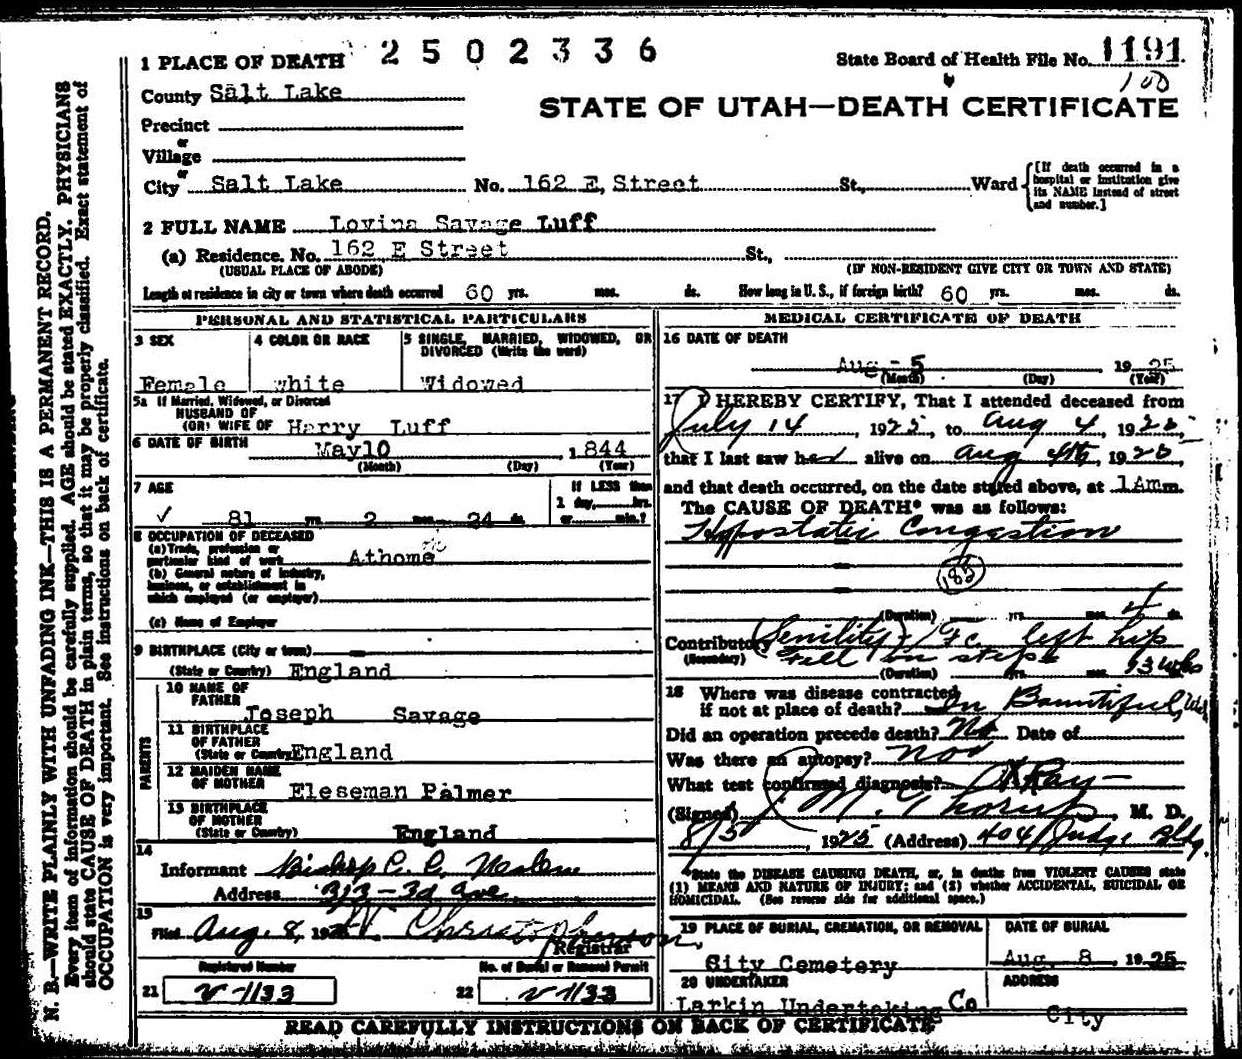 1 PLACE OF DEATH 2502336 State Board of Health File No. 1191
100
County Salt Lake
STATE OF UTAH—DEATH CERTIFICATE
Precinct
or
Village
or
City Salt Lake No. 162 E, Street St., Ward [If death occurred in a hospital or institution give its NAME instead of street and number.]
2 FULL NAME Lovina Savage Luff
(a) Residence. No. 162 E Street St.,
(USUAL PLACE OF ABODE) (IF NON-RESIDENT GIVE CITY OR TOWN AND STATE)
Length of residence in city or town where death occurred 60 yrs. mos. ds. How long in U. S., if foreign birth? 60 yrs. mos. ds.
PERSONAL AND STATISTICAL PARTICULARS
3 SEX
Female
4 COLOR OR RACE
white
5 SINGLE, MARRIED, WIDOWED, OR
DIVORCED (Write the word)
Widowed
5a If Married, Widowed, or Divorced
HUSBAND OF
(OR) WIFE OF Harry Luff
6 DATE OF BIRTH May10 , 1844
(Month) (Day) (Year)
7 AGE
81 yrs. 2 mos. 24 ds.
If LESS than
1 day, hrs.
or min.?
8 OCCUPATION OF DECEASED
(a) Trade, profession or
particular kind of work Athome
(b) General nature of industry,
business, or establishment in
which employed (or employer)
(c) Name of Employer
9 BIRTHPLACE (City or town)
(State or Country) England
PARENTS
10 NAME OF
FATHER Joseph Savage
11 BIRTHPLACE
OF FATHER
(State or Country) England
12 MAIDEN NAME
OF MOTHER Eleseman Palmer
13 BIRTHPLACE
OF MOTHER
(State or Country) England
14
Informant Bishop C. C.
Address 313-3d Ave
15
Filed Aug. 8, 19 Christopherson
Registrar
Registered Number No. of Burial or Removal Permit
21 V-1133 22 V-1133
MEDICAL CERTIFICATE OF DEATH
16 DATE OF DEATH
Aug - 5 1925
(Month) (Day) (Year)
17 I HEREBY CERTIFY, That I attended deceased from
July 14, 1925, to Aug 4, 1925,
that I last saw her alive on Aug 4th, 1925,
and that death occurred, on the date stated above, at 1 Am m.
The CAUSE OF DEATH* was as follows:
Hypostatic Congestion
185
(Duration) yrs. mos. 4 ds.
Contributory Senility - Fc. left hip
(Secondary) Fell on steps
(Duration) yrs. mos. 3 wks
18 Where was disease contracted
if not at place of death? In Bountiful, Utah
Did an operation precede death? No Date of
Was there an autopsy? no
What test confirmed diagnosis? X Ray
(Signed) M. D.
8/5, 1925 (Address) 404 Judge Bldg.
*State the DISEASE CAUSING DEATH, or, in deaths from VIOLENT CAUSES state
(1) MEANS AND NATURE OF INJURY; and (2) whether ACCIDENTAL, SUICIDAL OR
HOMICIDAL. (See reverse side for additional space.)
19 PLACE OF BURIAL, CREMATION, OR REMOVAL
City Cemetery
DATE OF BURIAL
Aug. 8, 1925
20 UNDERTAKER
Larkin Undertaking Co
ADDRESS
City
READ CAREFULLY INSTRUCTIONS ON BACK OF CERTIFICATE
N. B.—WRITE PLAINLY WITH UNFADING INK—THIS IS A PERMANENT RECORD.
Every item of information should be carefully supplied. AGE should be stated EXACTLY. PHYSICIANS
should state CAUSE OF DEATH in plain terms, so that it may be properly classified. Exact statement of
OCCUPATION is very important. See instructions on back of certificate.